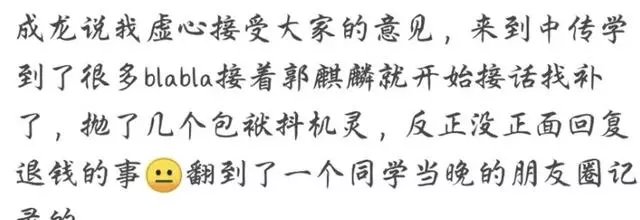 成龙说我虚心接受大家的意见，来到中传学
到了很多blabla接着郭麒麟就开始接话找补
了，抛了几个包袱抖机灵，反正没正面回复
退钱的事😐翻到了一个同学当晚的朋友圈记